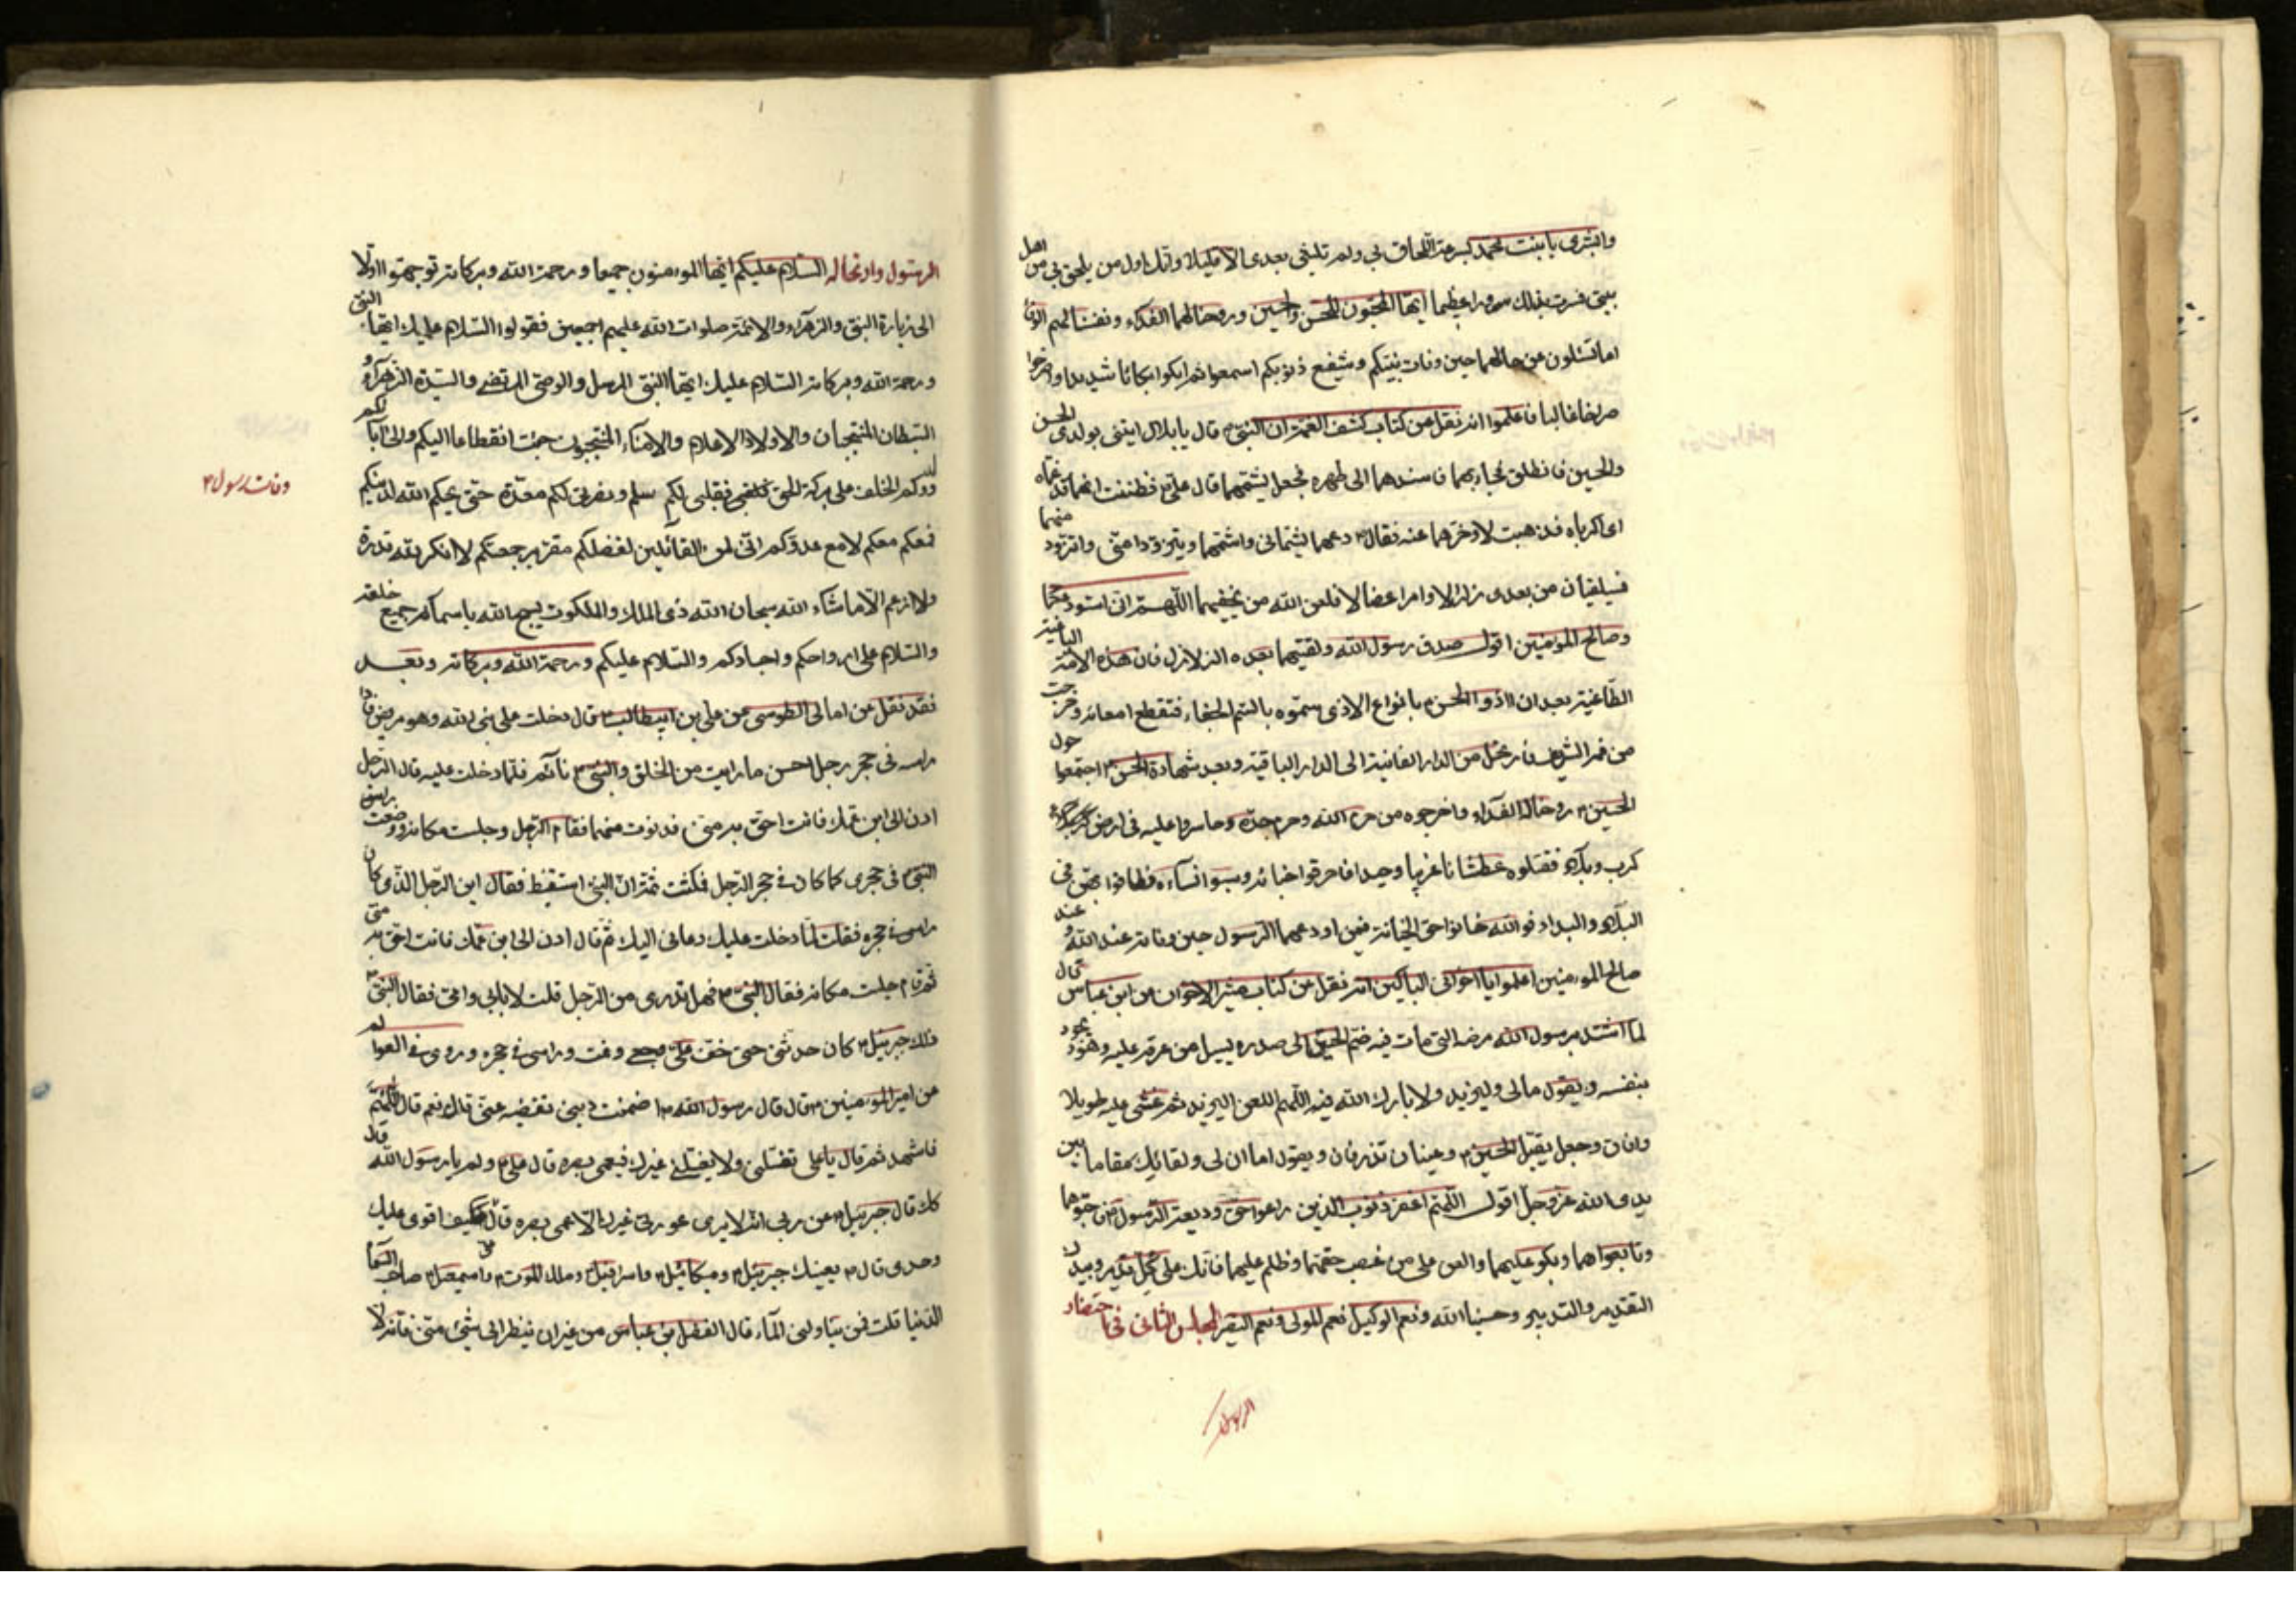 وابشري يا بنت محمد بسرعة اللحاق بي ولم تلبثي بعدي الا قليلا وانك اول من يلحق بي من اهل
بيتي فسرت بذلك سرورا عظيما ايها المحبون للحسن والحسين وروحنا لهما الفداء ونفسنا لهم الوقاء
اما تسئلون عن حالهما حين وفات نبيكم وشفيع ذنوبكم اسمعوا ثم ابكوا بكائا شديدا واصرخوا
صراخا غالبا فاعلموا انه نقل من كتاب كشف الغمة ان النبي ص قال يا بلال ايتني بولدي الحسن
والحسين فانطلق فجاء بهما فاسندهما الى ظهره فجعل يشمهما قال علي فظننت انهما قد غماه
اي اكرباه فذهبت لاوخرهما عنه فقال ص دعهما يشماني واشمهما ويتزودا مني واتزود منهما
فسيلقيان من بعدي زلزالا وامرا عضالا فلعن الله من يخيفهما اللهم اني استودعكهما
وصالح المومنين اقول صدق رسول الله ولقيتهما بعده الزلازل فان هذه الامة الباغية
الطاغية بعد ان اذوا الحسن بانواع الاذى سموه بالسم الجفاء فتقطع امعائه وخرجت
من فمه الشريف فارتحل من الدار الفانية الى الدار الباقية وبعد شهادة الحسن اجتمعوا حول
الحسين روحنا له الفداء واخرجوه من حرم الله وحرم جده وحاسروا عليه في ارض كربلاء
كرب وبلاء فقتلوه عطشانا غريبا وحيدا فاحرقوا اخبائه وسبوا نساءه فطافوا بهن في
البلاد والبداد فوالله خانوا حق الخيانة فيمن اودعهما الرسول حين وفاته عند الله وعند
صالح المومنين اعلموا يا اخواني الباكين انه نقل من كتاب مثير الاحزان عن ابن عباس قال
لما اشتد برسول الله مرضه التي مات فيه ضم الحسين الى صدره يسيل من عرقه عليه وهو يجود
بنفسه ويقول مالي وليزيد ولا بارك الله فيه اللهم العن اليزيد ثم غشي عليه طويلا
وافاق وجعل يقبل الحسين وعيناه تذرفان ويقول اما ان لي ولقاتلك مقاما بين
يدي الله عز وجل اقول اللهم اغفر ذنوب الذين راعوا حق وديعة الرسول من حبوهما
وتابعواهما وبكو عليهما والعن على من غصب حقهما وظلم عليهما فانك على كل قدير وبيدك
التقدير والتدبير وحسبنا الله ونعم الوكيل نعم المولى ونعم النصير المجلس الثاني في احتضار
الرسول
الرسول وارتحاله السلام عليكم ايها المومنون جميعا ورحمة الله وبركاته توجهوا اولا
الى زيارة النبي والزهراء والائمة صلوات الله عليهم اجمعين فقولوا السلام عليك ايها النبي
ورحمة الله وبركاته السلام عليك ايها النبي المرسل والوصي المرتضى والسيدة الزهراء و
السبطان المنتجبان والاولاد الاعلام والامناء المنتجبون جئت انقطاعا اليكم والى ابائكم
وولدكم الخلف على بركة الحق فقلبي لكم سلم ونصرتي لكم معدة حتى يحكم الله لدينكم
فمعكم معكم لا مع عدوكم اني لمن القائلين بفضلكم مقر برجعتكم لا انكر لله قدرة
ولا ازعم الا ما شاء الله سبحان الله ذي الملك والملكوت يسبح الله باسمائه جميع خلقه
والسلام على ارواحكم واجسادكم والسلام عليكم ورحمة الله وبركاته وبعد
فقد نقل عن امالي الطوسي عن علي بن ابيطالب قال دخلت على نبي الله وهو مريض فاذا
راسه في حجر رجل احسن ما رايت من الخلق والنبي ص نائم فلما دخلت عليه قال الرجل
ادن الى ابن عمك فانت احق به مني فدنوت منهما فقام الرجل وجلست مكانه ووضعت راس
النبي في حجري كما كان في حجر الرجل فمكثت ثم ان النبي استيقظ فقال اين الرجل الذي كان
راسي في حجره فقلت لما دخلت عليك دعاني اليك ثم قال ادن الى ابن عمك فانت احق به مني
ثم قام جلست مكانه فقال النبي ص فهل تدري من الرجل قلت لا بابي وامي فقال النبي ص
ذلك جبرئيل كان حدثني حتى خف علي وجعي ونمت وراسي في حجره وروي في العوالم
عن امير المومنين قال قال رسول الله ص اضمنت ديني تقضيه عني قال نعم قال اللهم
فاشهد ثم قال يا علي تغسلني ولا يغسلني غيرك فيعمى بصره قال علي ولم يا رسول الله قال
كك قال جبرئيل عن ربي انه لا يرى عورتي غيرك الا عمي بصره قال علي فكيف اقوى عليك
وحدي قال ص يعينك جبرئيل وميكائيل واسرافيل وملك الموت واسمعيل صاحب السماء
الدنيا قلت فمن يناولني الماء قال الفضل بن عباس من غير ان ينظر الى شيء مني فانه لا
وفات رسول ص